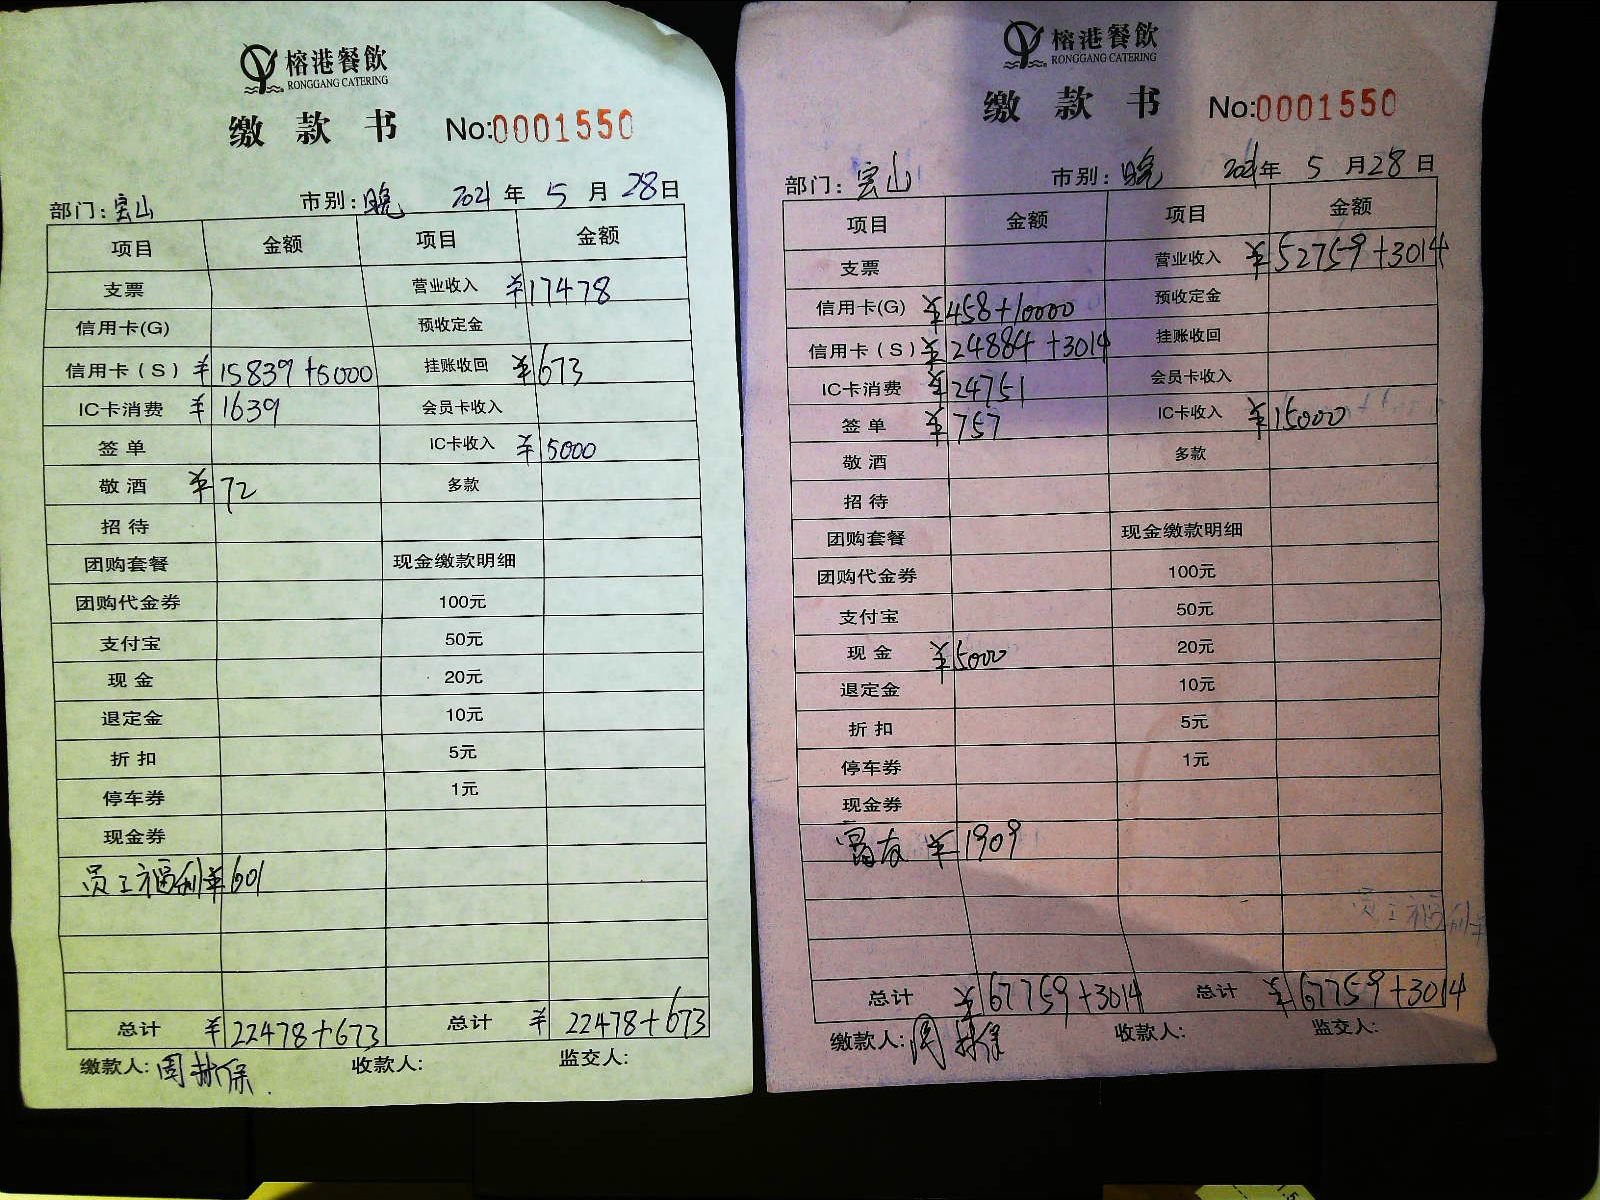 榕港餐飲
RONGGANG CATERING
缴款书 No:0001550
部门: 宝山 市别: 晚 2021年 5月28日
项目 金额 项目 金额
支票 营业收入 ¥17478
信用卡(G) 预收定金
信用卡(S) ¥15839+5000 挂账收回 ¥673
IC卡消费 ¥1639 会员卡收入
签单 IC卡收入 ¥5000
敬酒 ¥72 多款
招待
团购套餐 现金缴款明细
团购代金券 100元
支付宝 50元
现金 20元
退定金 10元
折扣 5元
停车券 1元
现金券
员工福利 ¥601
总计 ¥22478+673 总计 ¥22478+673
缴款人: 周 保 收款人: 监交人:
榕港餐飲
RONGGANG CATERING
缴款书 No:0001550
部门: 宝山 市别: 晚 2021年 5月28日
项目 金额 项目 金额
支票 营业收入 ¥52759+3014
信用卡(G) ¥458+10000 预收定金
信用卡(S) ¥24884+3014 挂账收回
IC卡消费 ¥24751 会员卡收入
签单 ¥757 IC卡收入 ¥15000
敬酒 多款
招待
团购套餐 现金缴款明细
团购代金券 100元
支付宝 50元
现金 ¥5000 20元
退定金 10元
折扣 5元
停车券 1元
现金券
¥1909
员工福利 ¥
总计 ¥67759+3014 总计 ¥67759+3014
缴款人: 周 保 收款人: 监交人: